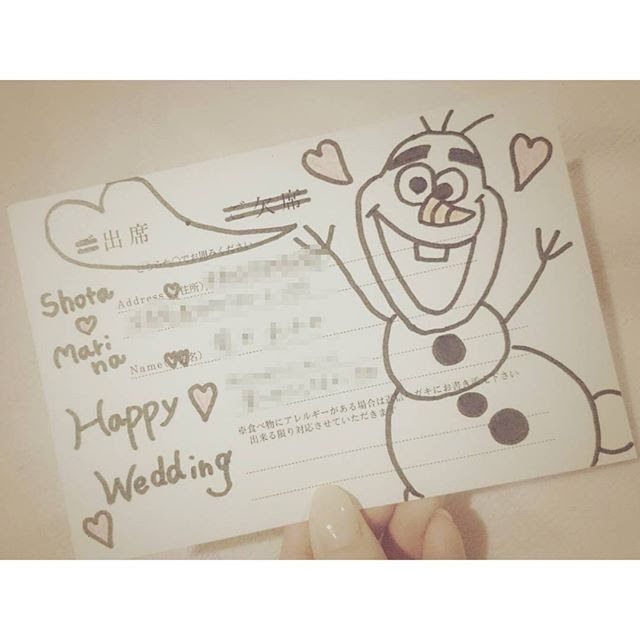 ご出席
ご欠席
どちらか○でお囲みください
Shota
Mari
na
Address (ご住所)
Name (ご芳名)
Happy
Wedding
※食べ物にアレルギーがある場合は
ガキにお書き
下さい
出来る限り対応させていただきます